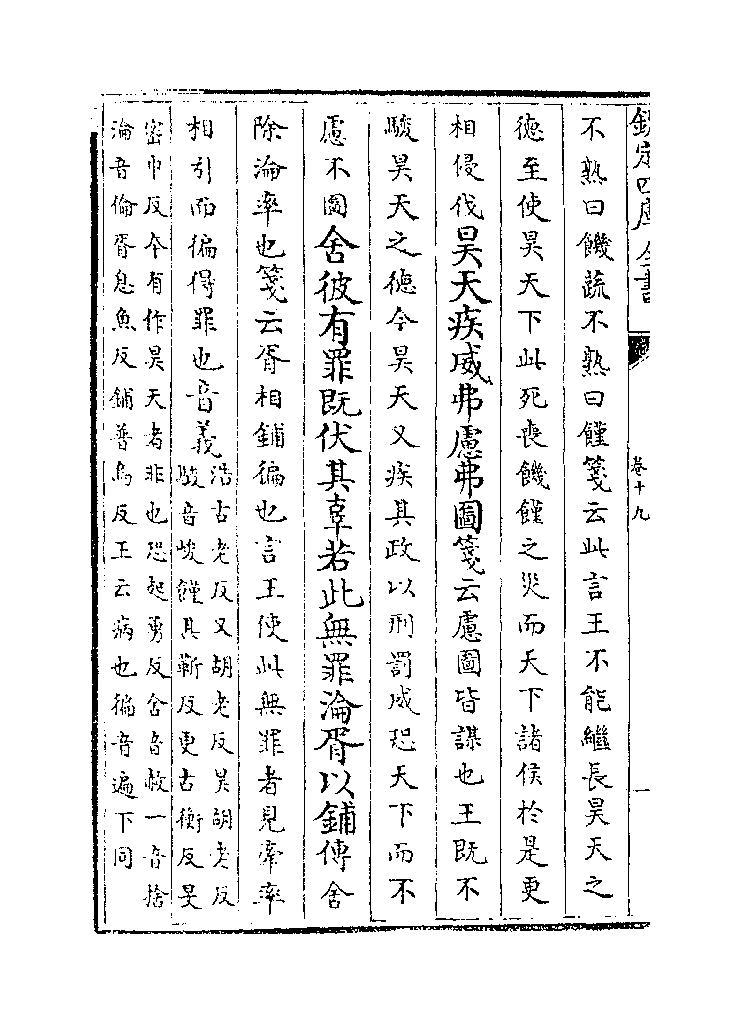 欽定四庫全書
卷十九
一
不熟曰饑蔬不熟曰饉箋云此言王不能繼長昊天之
德至使昊天下此死喪饑饉之災而天下諸侯於是更
相侵伐昊天疾威弗慮弗圖箋云慮圖皆謀也王既不
駿昊天之德今昊天又疾其政以刑罰威恐天下而不
慮不圖舍彼有罪既伏其辜若此無罪淪胥以鋪傳舍
除淪率也箋云胥相鋪徧也言王使此無罪者見牽率
相引而徧得罪也音義
浩古老反又胡老反昊胡老反
駿音峻饉其靳反更古衡反旻
密巾反本有作昊天者非也恐起勇反舍音赦一音捨
淪音倫胥息魚反鋪普烏反王云病也徧音遍下同